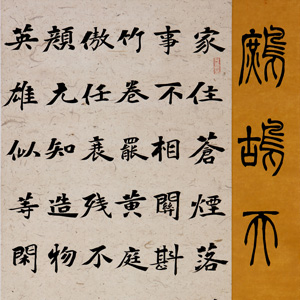 鷓鴣天
家住蒼煙落
事不相關斟
竹卷罷黄庭
傲任衰残不
顏元知造物
英雄似等閑